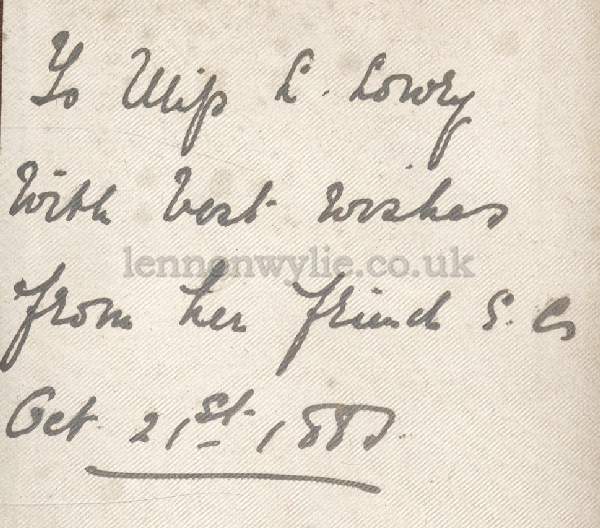 To Miss L. Lowry
With best wishes
lennonwylie.co.uk
from her friend S. C
Oct. 21st